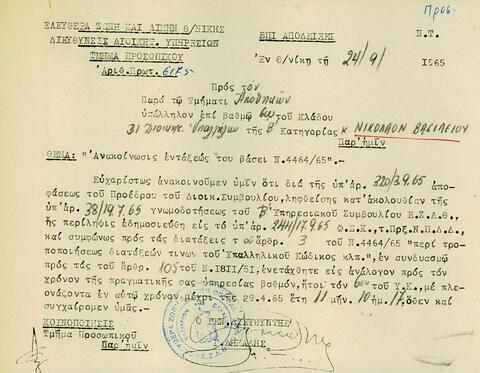 Προσ.
ΕΛΕΥΘΕΡΑ ΖΩΝΗ ΚΑΙ ΛΙΜΗΝ Θ/ΝΙΚΗΣ ΕΠΙ ΑΠΟΔΕΙΞΕΙ Ν.Τ.
ΔΙΕΥΘΥΝΣΙΣ ΔΙΟΙΚΗΤ. ΥΠΗΡΕΣΙΩΝ
ΤΜΗΜΑ ΠΡΟΣΩΠΙΚΟΥ Ἐν Θ/νίκῃ τῇ 24/9/ 1965
Ἀριθ.Πρωτ.
Πρός τόν
Παρά τῷ Τμήματι Ἀποθηκῶν
ὑπάλληλον ἐπί βαθμῷ 6ῳ τοῦ Κλάδου
Διοικητ. Ὑπαλλήλων τῆς Β Κατηγορίας κ. ΝΙΚΟΛΑΟΝ ΒΑΣΙΛΕΙΟΥ
Παρ'ἡμῖν
ΘΕΜΑ: "Ἀνακοίνωσις ἐντάξεώς του βάσει Ν.4464/65".-
Εὐχαρίστως ἀνακοινοῦμεν ὑμῖν ὅτι διά τῆς ὑπ'ἀριθ. 320/3.9.65 ἀπο-
φάσεως τοῦ Προέδρου τοῦ Διοικ.Συμβουλίου,ληφθείσης κατ'ἀκολουθίαν τῆς
ὑπ'ἀριθ. 38/19.7.65 γνωμοδοτήσεως τοῦ Β' Ὑπηρεσιακοῦ Συμβουλίου Ε.Ζ.Λ.Θ.,
ἧς περίληψις ἐδημοσιεύθη εἰς τό ὑπ'ἀριθ. 244/17.9.65 Φ.Ε.Κ.,τ.Πρξ.Ν.Π.Δ.Δ.,
καί συμφώνως πρός τάς διατάξεις τοῦ ἄρθρ. 3 τοῦ Ν.4464/65 "περί τρο-
ποποιήσεως διατάξεών τινων τοῦ Ὑπαλληλικοῦ Κώδικος κλπ.", ἐν συνδυασμῷ
πρός τάς τοῦ ἄρθρ. 105 τοῦ Ν.1811/51, ἐνετάχθητε εἰς ἀνάλογον πρός τόν
χρόνον τῆς πραγματικῆς σας ὑπηρεσίας βαθμόν, ἤτοι τόν 6ον τοῦ Υ.Κ., μέ πλεο-
νάζοντα ἐν αὐτῷ χρόνον μέχρι τῆς 29.4.65 ἔτη 11 μῆν. 10 ἡμ. 17, ὅθεν καί
συγχαίρομεν ὑμᾶς.
ΚΟΙΝΟΠΟΙΗΣΙΣ Ο ΓΕΝ.ΔΙΕΥΘΥΝΤΗΣ
Τμῆμα Προσωπικοῦ
Παρ'ἡμῖν Γ.ΔΗΜΑΔΗΣ